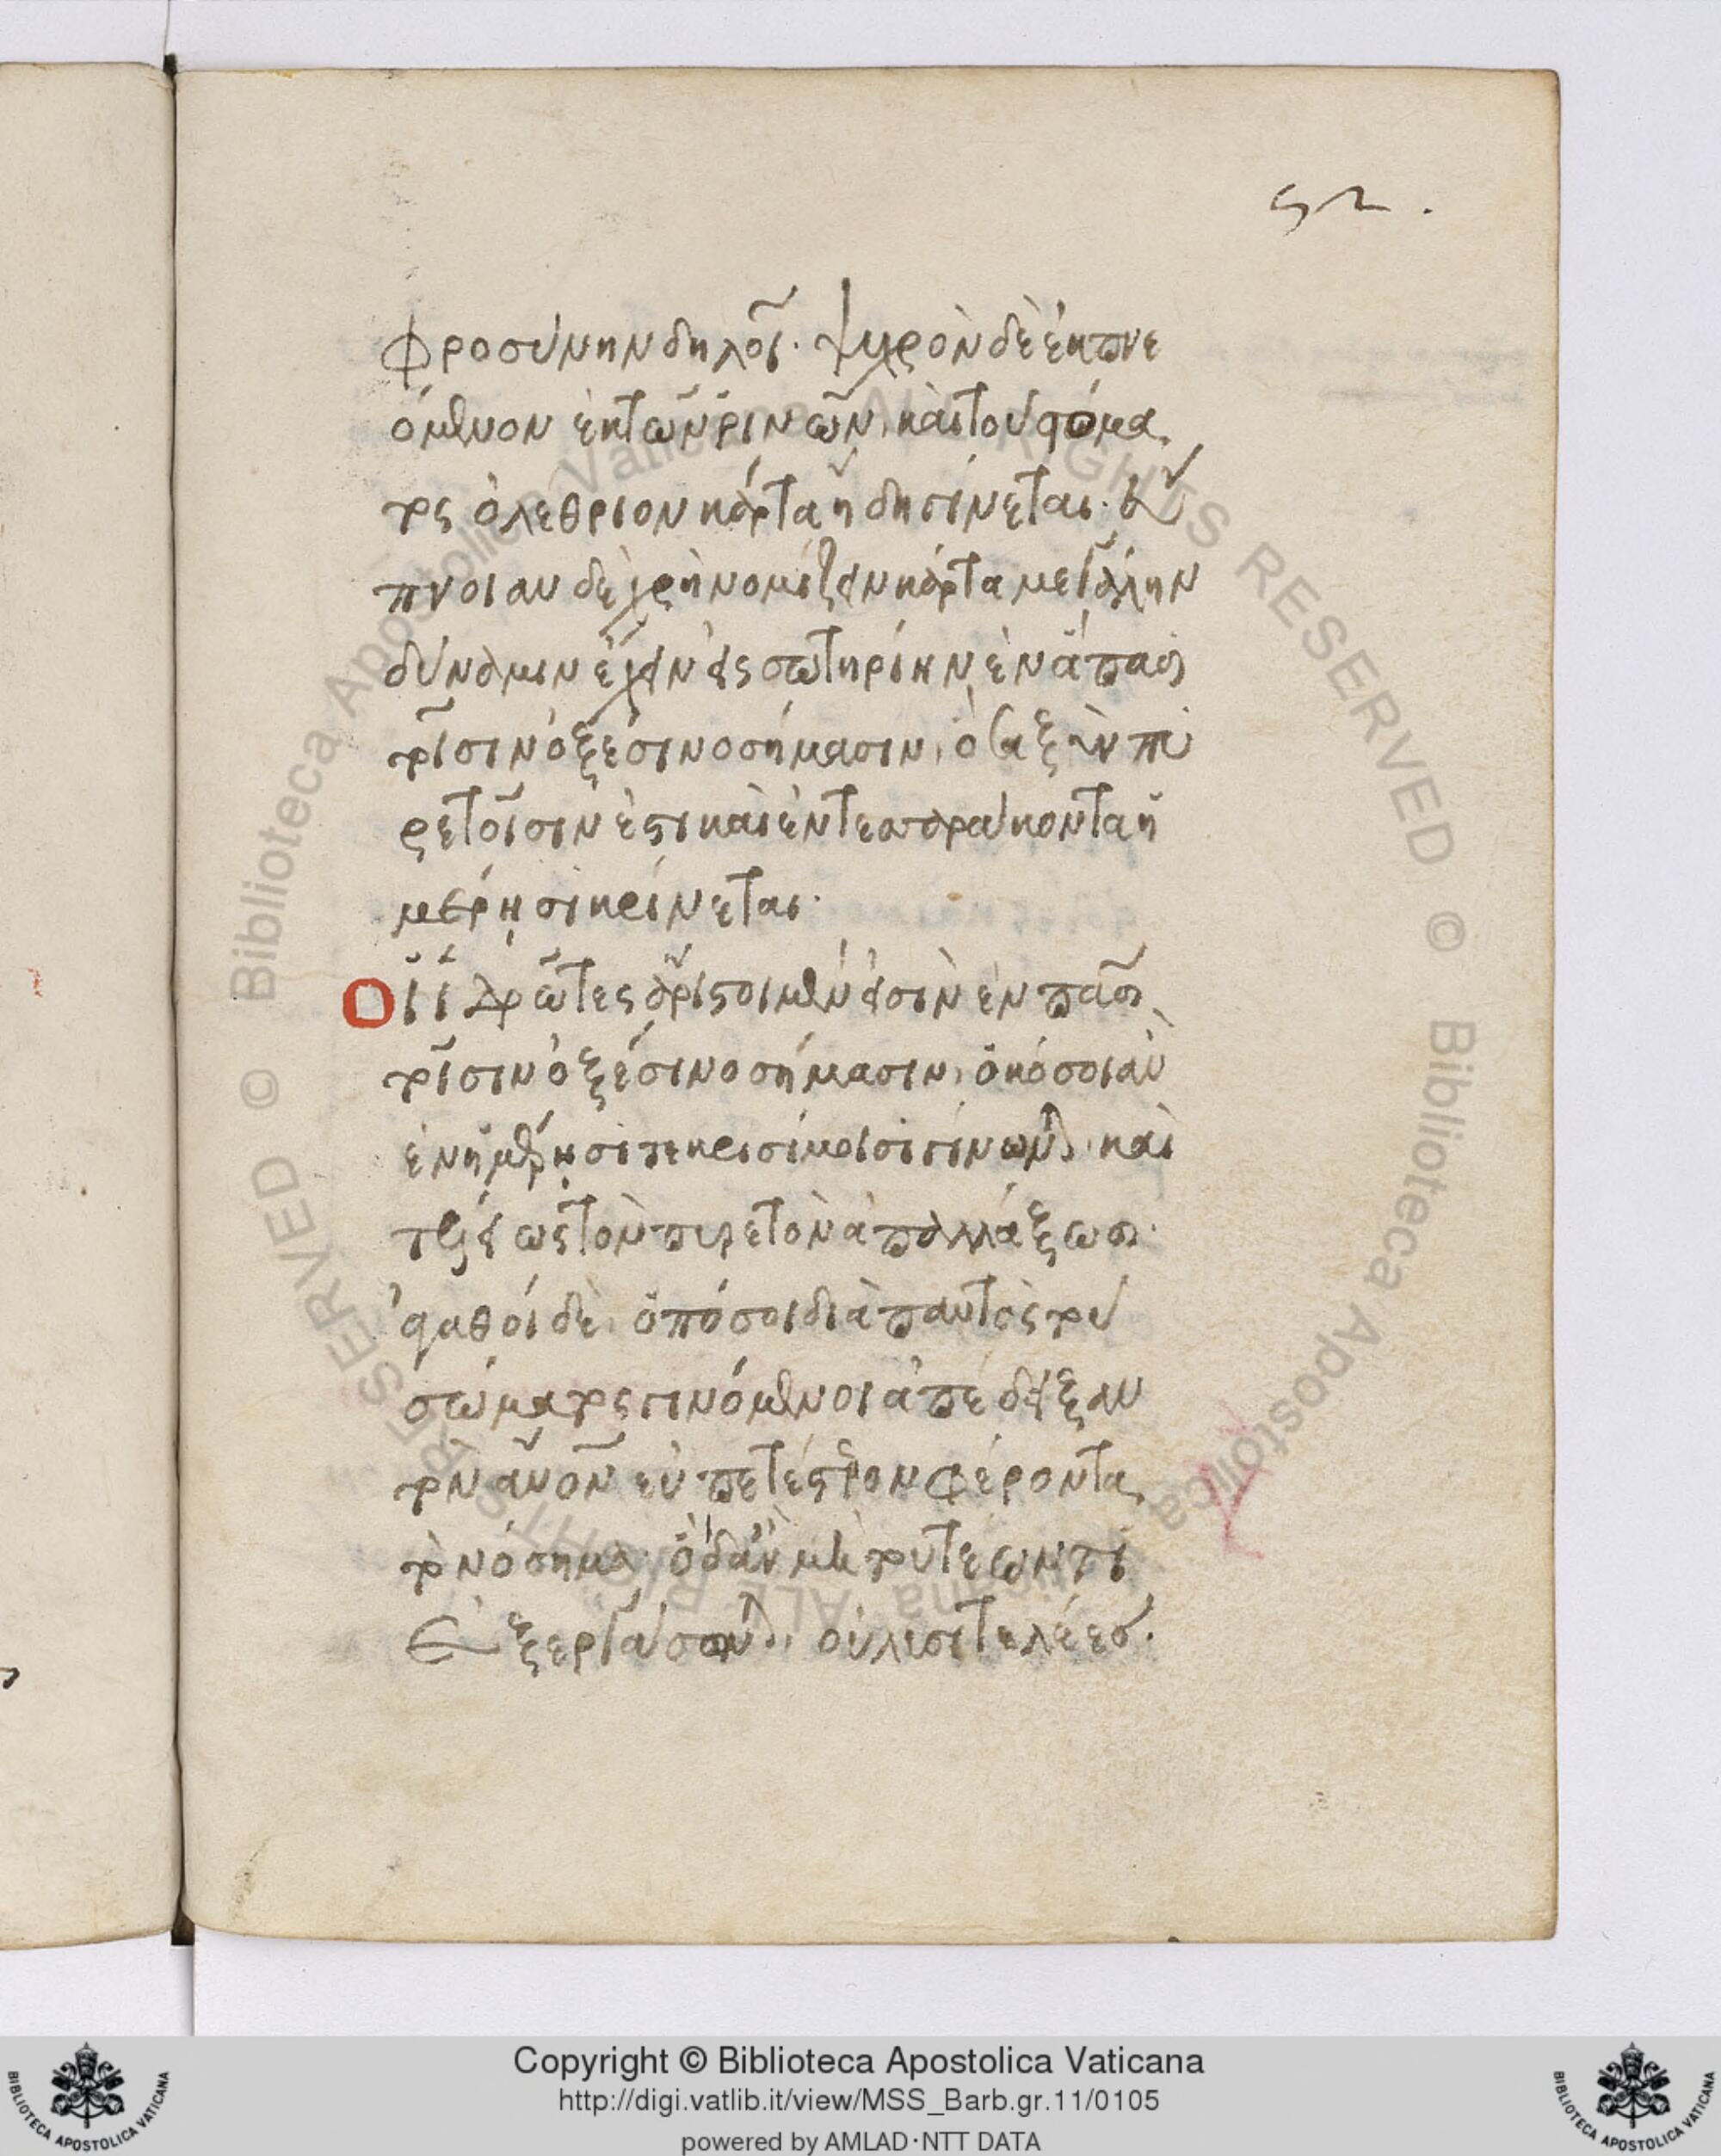 52.
φροσύνην δηλοῖ· ψυχρὸν δὲ ἐκπνε
όμενον ἐκ τῶν ῥινῶν, καὶ τοῦ στόμα
τος ὀλέθριον κάρτα ἤδη γίνεται· εὔ
πνοιαν δὲ χρὴ νομίζειν κάρτα μεγάλην
δύναμιν ἔχειν εἰς σωτηρίην ἐν ἅπασι
τοῖσιν ὀξέσι νοσήμασιν, ὁ
ρετοῖσιν ἐστι καὶ ἐν τεσσαράκοντα ἡ
μέρῃσι κρίνεται·
Οἱ ἱδρῶτες ἄριστοι μέν εἰσὶν ἐν πᾶσι
τοῖσιν ὀξέσι νοσήμασιν, ὁκόσοι ἂν
ἐν ἡμέρῃσί τε κρισίμοισι γίνωνται, καὶ
τελείως τὸν πυρετὸν ἀπαλλάξωσι·
ἀγαθοὶ δὲ, ὁπόσοι διὰ παντὸς τοῦ
σώματος γινόμενοι ἀπέδειξαν
τὸν ἄνθρωπον εὐπετέστερον φέροντα
τὸ νόσημα· οἳ δ' ἂν μὴ τουτέων τι
ἐξεργάσωνται, οὐ λυσιτελέες·
Copyright © Biblioteca Apostolica Vaticana
http://digi.vatlib.it/view/MSS_Barb.gr.11/0105
powered by AMLAD·NTT DATA
BIBLIOTECA APOSTOLICA VATICANA
BIBLIOTECA APOSTOLICA VATICANA
© Biblioteca Apostolica Vaticana ALL RIGHTS RESERVED © Biblioteca Apostolica Vaticana ALL RIGHTS RESERVED